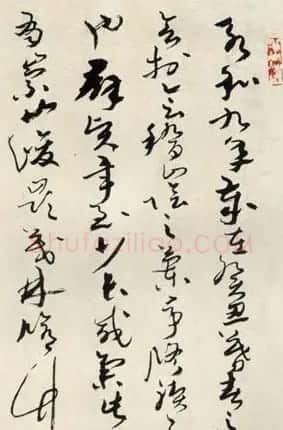 永和九年歲在癸丑暮春之
會於會稽山陰之蘭亭脩禊
也群賢畢至少長咸集此
有崇山峻領茂林脩竹
shufaziliao.com